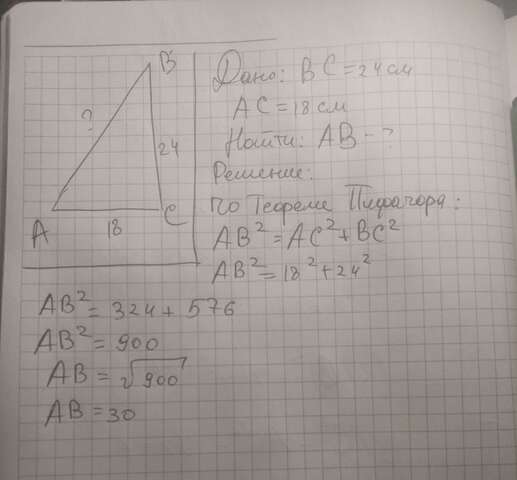 B
?
24
A
18
C
Дано: BC = 24 см
AC = 18 см
Найти: AB - ?
Решение:
по Теореме Пифагора:
AB² = AC² + BC²
AB² = 18² + 24²
AB² = 324 + 576
AB² = 900
AB = √900
AB = 30